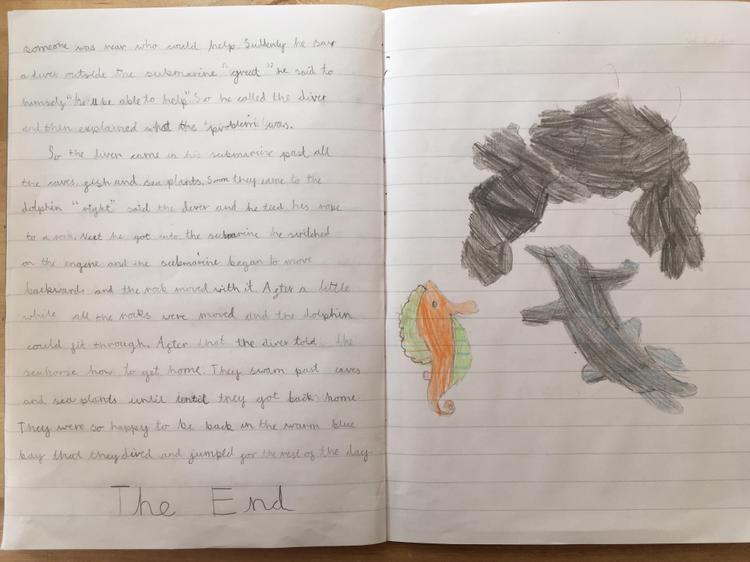 someone was near who could help. Suddenly he saw
a diver outside the submarine "great" he said to
himself "he'll be able to help" So he called the diver
and then explained what the "problem" was.
So the diver came in his submarine past all
the caves, fish and sea plants. Soon they came to the
dolphin "right" said the diver and he tied his rope
to a rock. Next he got into the submarine he switched
on the engine and the submarine began to move
backwards and the rock moved with it. After a little
while all the rocks were moved and the dolphin
could fit through. After that the diver told the
seahorse how to get home. They swam past caves
and sea plants until until they got back home
They were so happy to be back in the warm blue
bay that they dived and jumped for the rest of the day.
The End